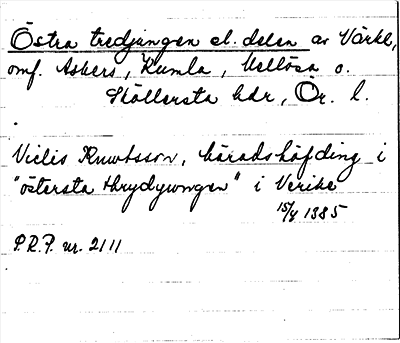 Östra tredjungen el. delen av Närke,
omf. Askers, Kumla, Mellösa o.
Sköllersta hdr, Ör. l.
Niclis Knwtsson, häradshöfding i
"östersta thrydywngen" i Nerike
15/4 1385
P.R.P. nr. 2111